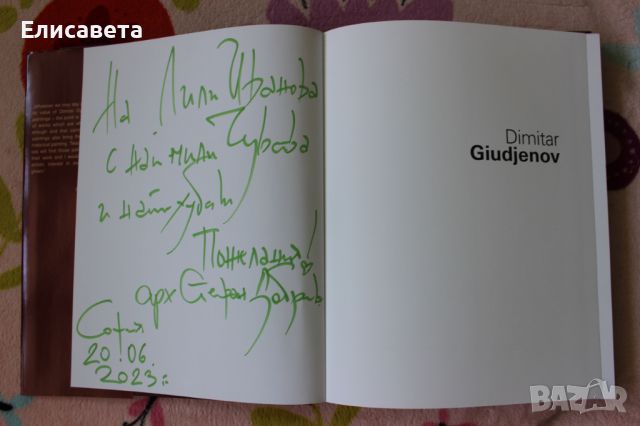 Елисавета
На Лили Иванова
с най мили чувства
и най хубави
Пожелания!
арх Стефан
София
20.06.
2023г.
Dimitar
Giudjenov
BAZAR